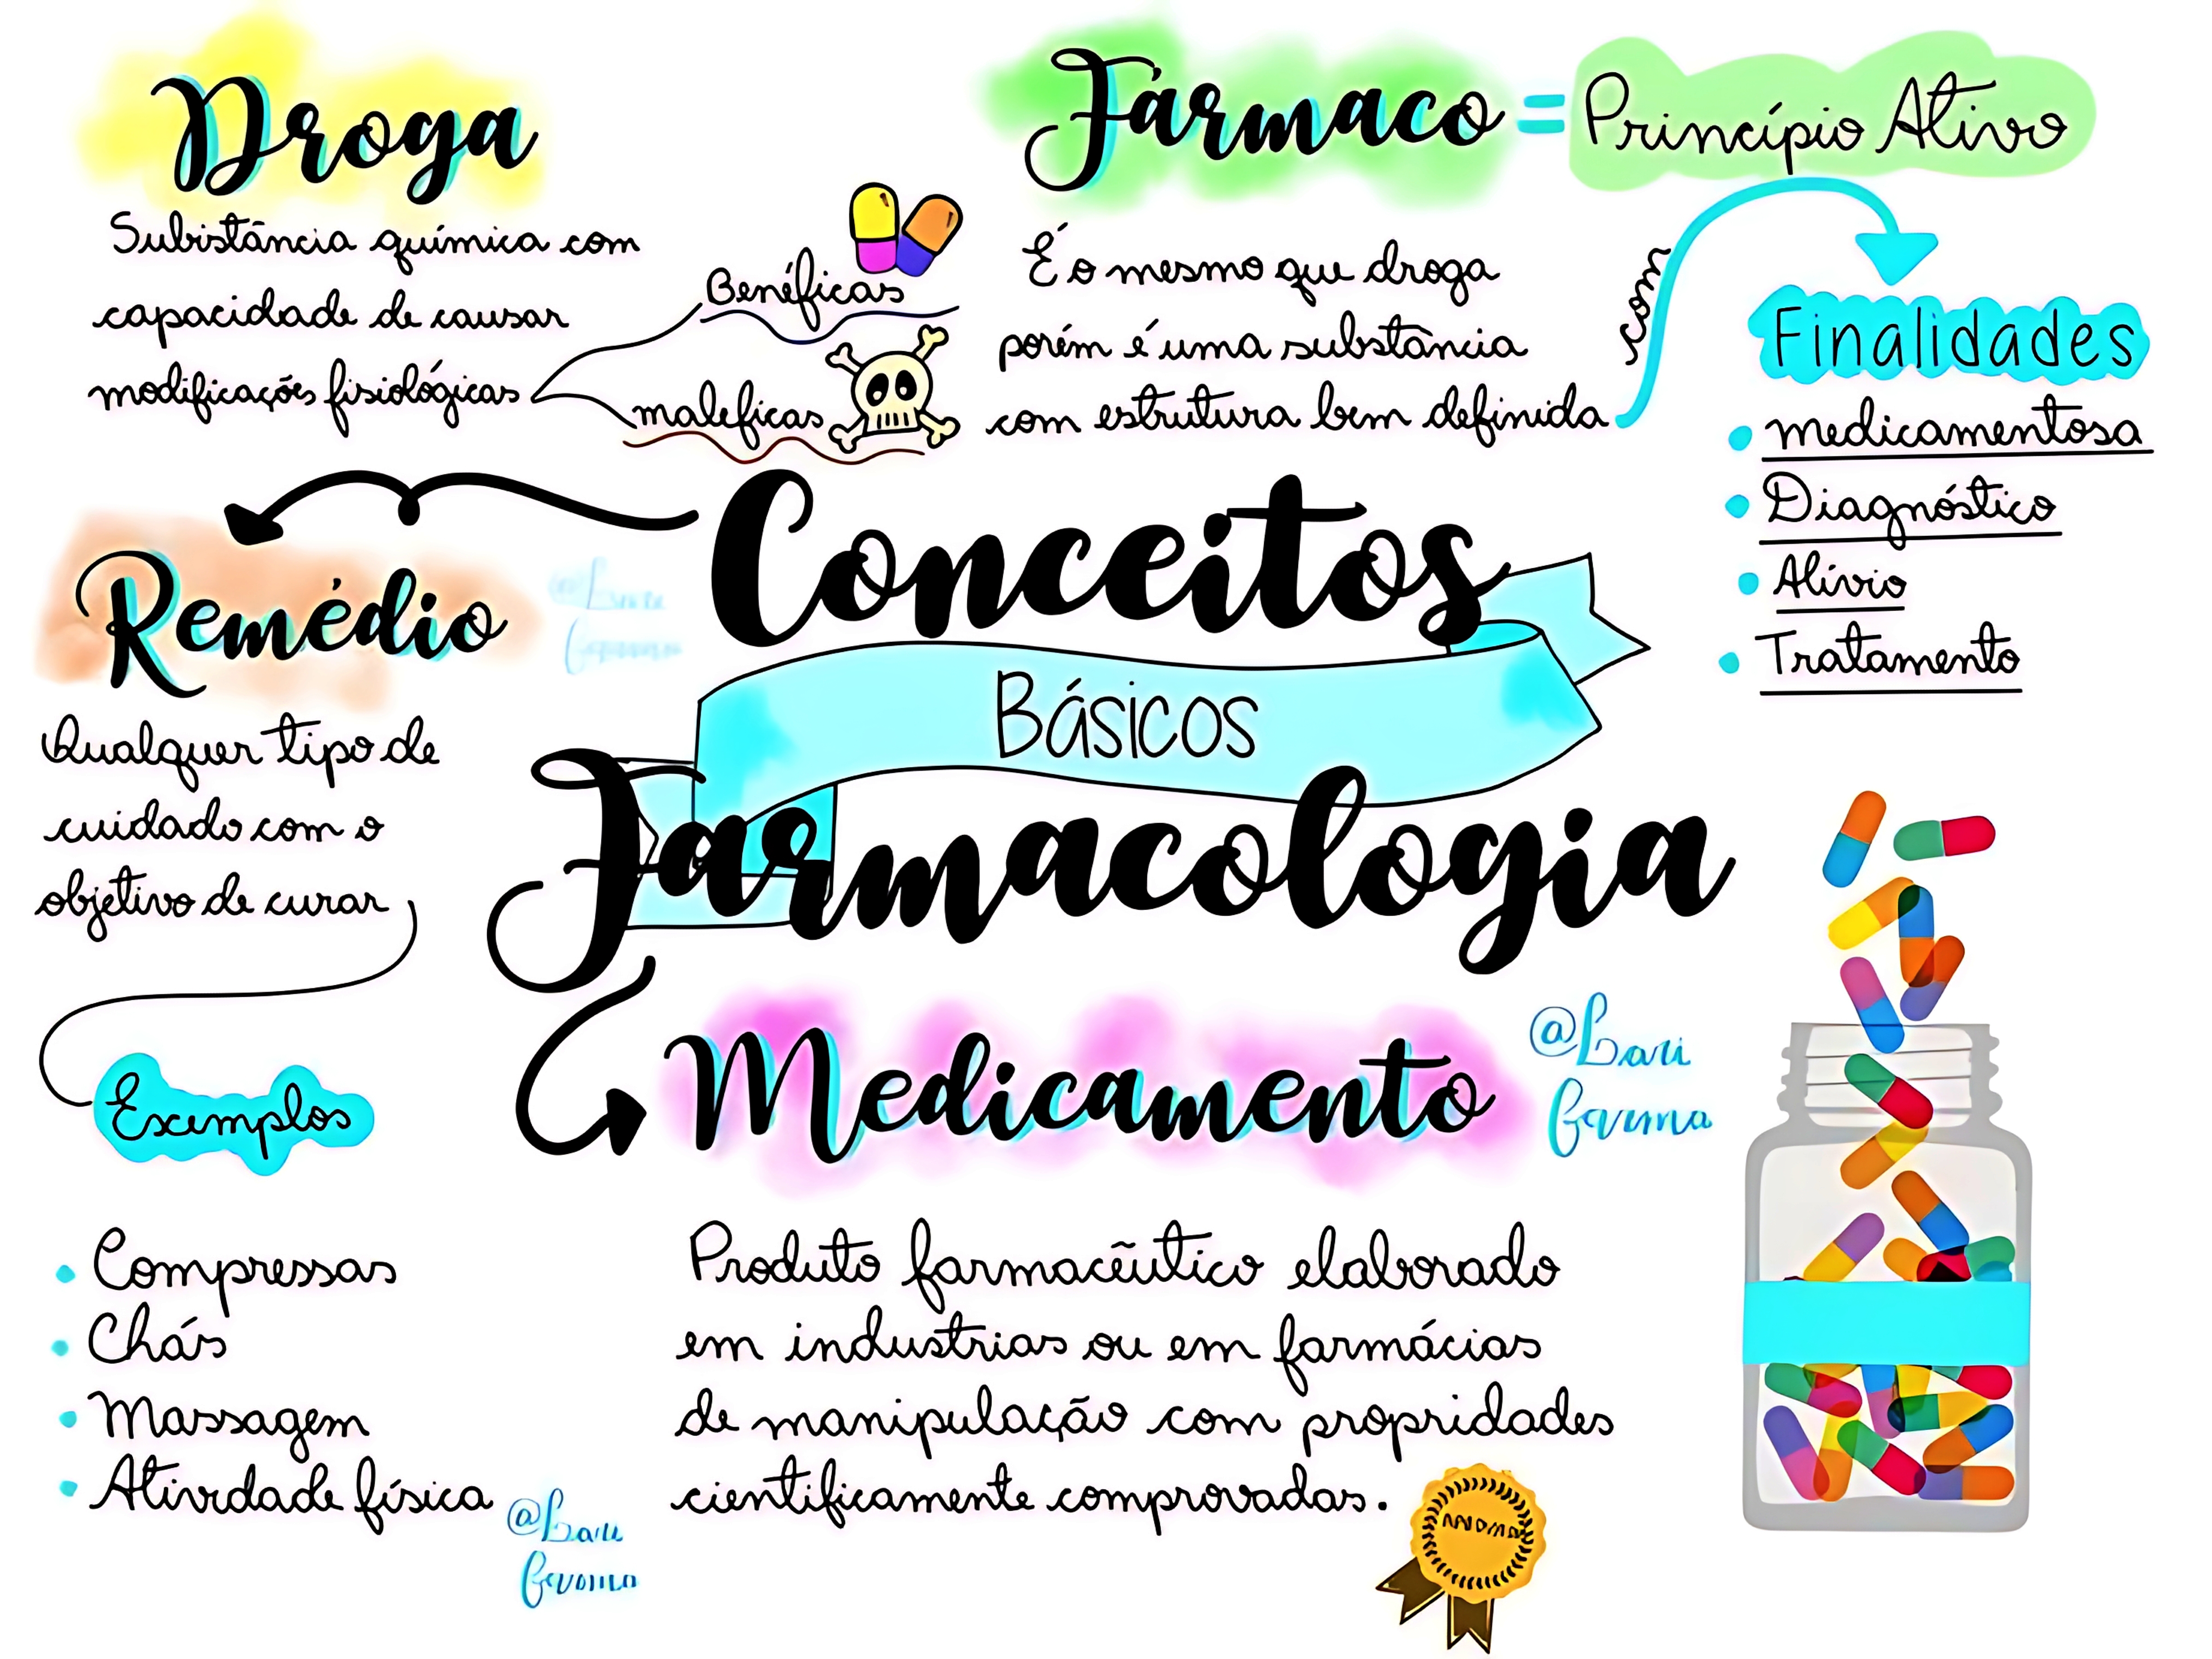 Droga
Subistância química com
capacidade de causar
modificações fisiológicas
Benéficas
maleficas
Fármaco = Princípio Ativo
É o mesmo que droga
porém é uma substância
com estrutura bem definida
com
Finalidades
• medicamentosa
• Diagnóstico
• Alívio
• Tratamento
Conceitos
Básicos
Farmacologia
Remédio
Qualquer tipo de
cuidado com o
objetivo de curar
Exemplos
• Compressas
• Chás
• Massagem
• Ativdade física
@Lari
farma
Medicamento
@Lari
farma
Produto farmacêutico elaborado
em industrias ou em farmácias
de manipulação com propridades
cientificamente comprovadas.